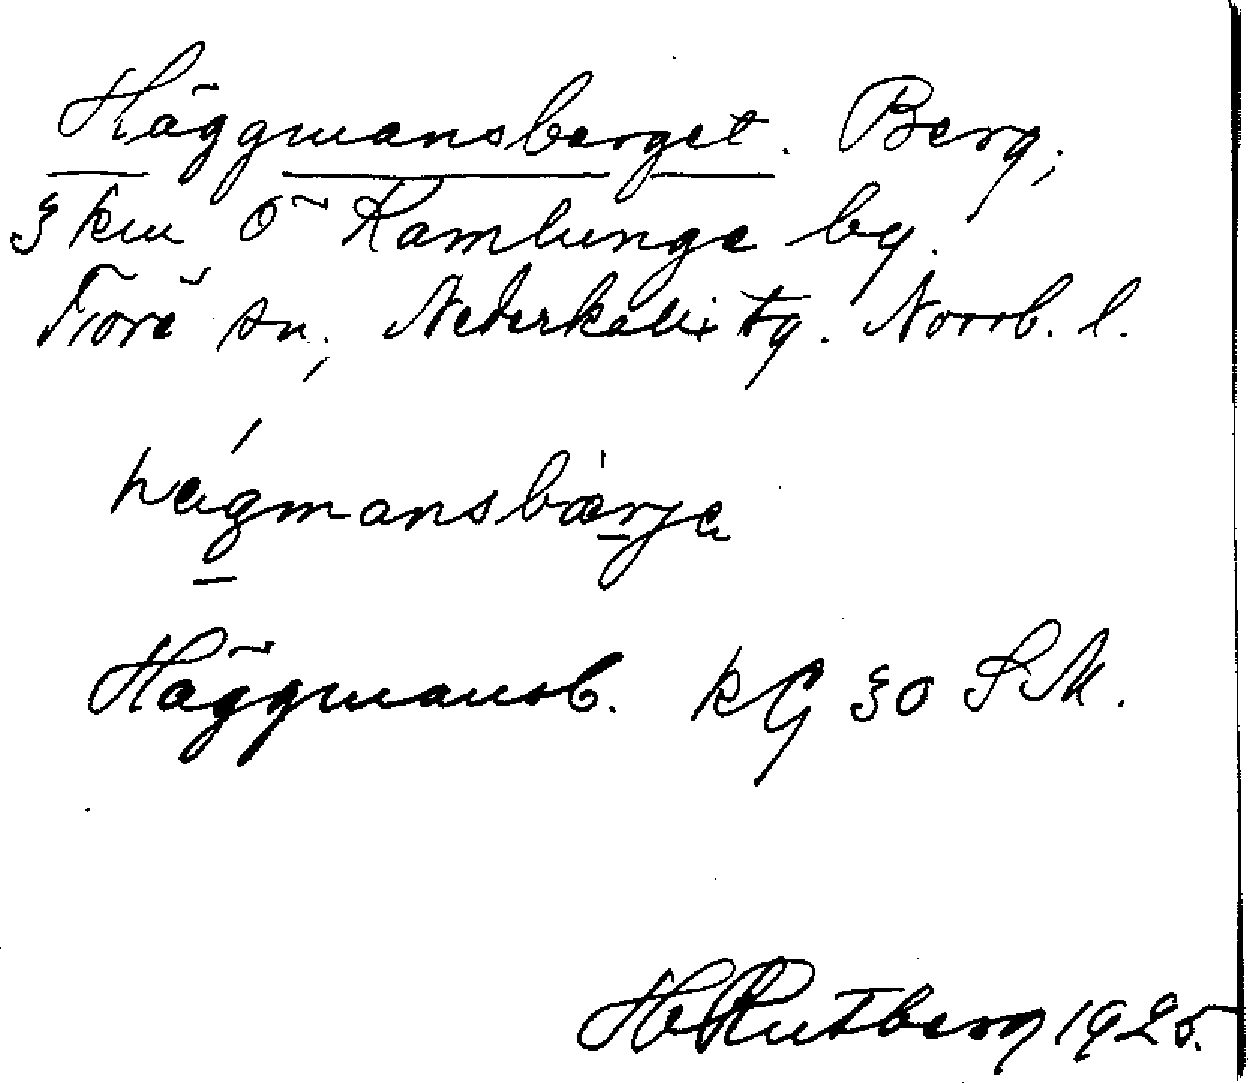 Häggmansberget. Berg;
3 km Ö Kamlunge by.
Töre sn; Nederkalix tg. Norrb. l.
hägmansbærje
Häggmansb. kG 30 S.M.
H Rutberg 1925.